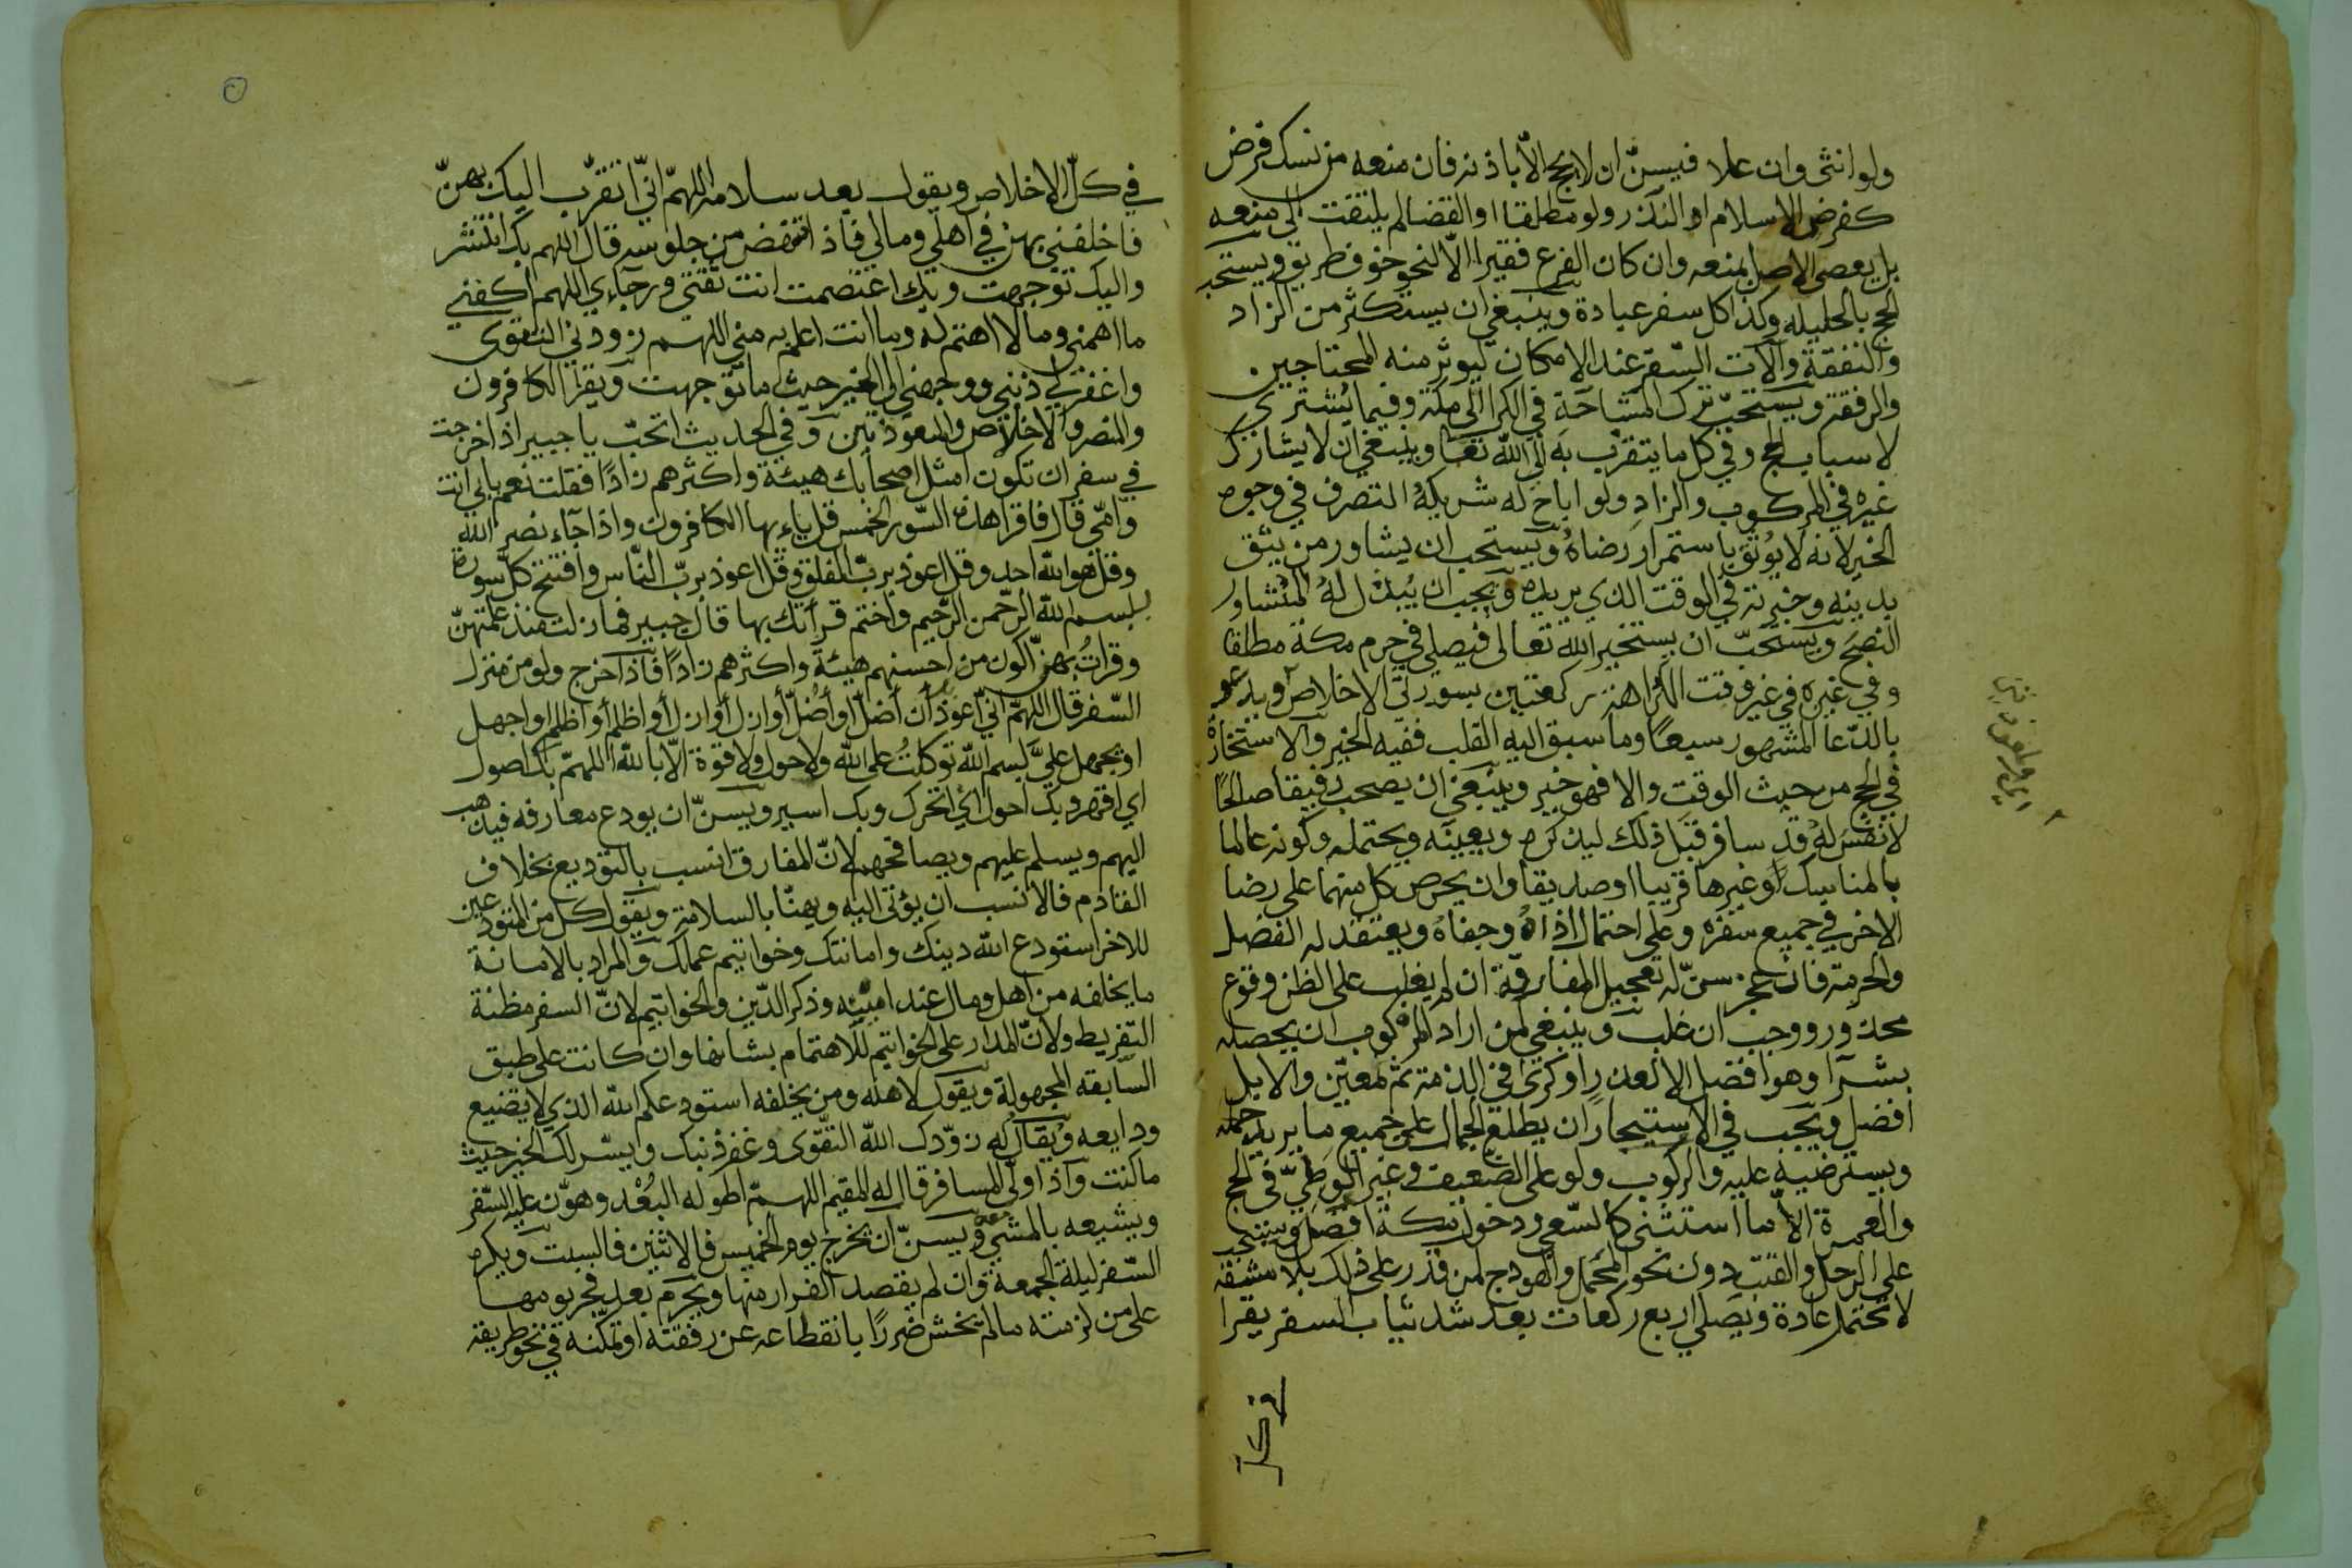 ولو انثى وان علا فيسنّ ان لا يحج الّا باذنه فان منعه من نسك فرض
كفرض الاسلام او النذر ولو مطلقا او القضا لم يلتفت الى منعه
بل يعصى الاصل بمنعه وان كان الفرع فقيرا الّا لنحو خوف طريق ويستحب
الحج بالحليله وكذا كل سفر عبادة وينبغي ان يستكثر من الزاد
والنفقة وآلات السّفر عند الامكان ليوثر منه المحتاجين.
والرفقة ويستحبّ ترك المشاحّة في الكرا الى مكة وفيما يُشترى
لاسباب الحج وفي كل ما يتقرب به الى اللّه تعا وينبغي ان لا يشارك
غيره في المركوب والزاد ولو اباح له شريكه التصرف في وجوه
الخير لانه لا يُوثق باستمرار رضاه ويستحب ان يشاور من يثق
بدينه وخبرته في الوقت الذي يريده ويجب ان يُبذل له المتشاور
النصح ويستحبّ ان يستخير الله تعالى فيصلي في حرم مكة مطلقا
وفي غيره في غير وقت الكراهة ركعتين بسورتى الاخلاص ويدعو
بالدّعا المشهور سبعًا وما سبق اليه القلب ففيه الخير والاستخارة
في الحج من حيث الوقت والا فهو خير وينبغي ان يصحب رفيقا صالحًا
لانفس له قد سافر قبل ذلك ليذكره ويعينه ويحتمله وكونه عالما
بالمناسك او غيرها قريبا او صديقا وان يحرص كل منهما على رضا
الاخر في جميع سفره وعلى احتمال اذاه وجفاهُ ويعتقد له الفضل
والحرمة فان عجز سنّ له تعجيل المفارقة ان لم يغلب على الظن وقوع
محذور ووجب ان غلب وينبغي لمن اراد المركوب ان يحصله
بشرآ وهو افضل الا لعذر او كرى في الذمة ثم لمعيّن والابل
افضل ويجب في الاستيجار ان يطلع الجمال على جميع ما يريد حمله
ويسترضيه عليه والركوب ولو على الضعيف في غير الوطيّ في الحج
والعمرة الّا ما استثنى كالسّعي ودخول مكة افضل ويستحب
على الرحل والقتب دون نحو المحمل والهودج لمن قدر على ذلك بلا مشقه
لا تحتمل عادة ويصلي اربع ركعات بعد شد ثياب السفر يقرا
في كل
في كلّ الاخلاص ويقول بعد سلامه اللهمّ انيّ اتقرّب اليك بهنّ
فاخلفني بهن في اهلي ومالي فاذا نهض من جلوسه قال اللهم بك انتشر
واليك توجهت وبك اعتصمت انت ثقتي ورجآءي اللهم اكفني
ما اهمني وما لا اهتم له وما انت اعلم به مني اللهم زودني التقوى
واغفر لي ذنبي ووجهني الى الخير حيث ما توجهت ويقرا الكافرون
والنصر والاخلاص والمعوذتين وفي الحديث اتحبّ يا جبير اذا خرجت
في سفر ان تكون امثل اصحابك هيئة واكثرهم زادًا فقلت نعم بابي انت
وامّي قال فاقرا هذه السّور الخمس قل ياءيها الكافرون واذا جآء نصر اللّه
وقل هو اللّه احد وقل اعوذ بربّ الفلق وقل اعوذ بربّ النّاس وافتتح كلّ سورة
ببسم اللّه الرّحمن الرّحيم واختم قرأتك بها قال جبير فما زلت منذ علمتهنّ
وقراتُ بهن اكون من احسنهم هيئة واكثرهم زادًا فاذا خرج ولو من منزل
السّفر قال اللهمّ انيّ اعوذ بك ان أضلّ أو أُضلّ أو ازل أو ازل أو اظلم أو أظلم او اجهل
او يجهل عليّ بسم اللّه توكلتُ على اللّه ولا حول ولا قوة الّا باللّه اللهمّ بك اصول
اي اقهر وبك احول ائي اتحرك وبك اسير ويسنّ ان يودع معارفه فيذهب
اليهم ويسلم عليهم ويصافحهم لانّ المفارق انسب بالتوديع بخلاف
القادم فالانسب ان يؤتى اليه ويهنّا بالسلامة ويقول كل من المتودعين
للاخر استودع اللّه دينك وامانتك وخواتيم عملك والمراد بالامانة
ما يخلفه من اهل ومال عند امينه وذكر الدّين والخواتيم لانّ السفر مظنة
التّفريط ولانّ المدار على الخواتيم للاهتمام بشانها وان كانت على طبق
السّابقه المجهولة ويقول لاهله ومن يخلفه استودعكم اللّه الذي لا يضيع
ودايعه ويقال له زوّدك اللّه التقّوى وغفر ذنبك ويسّر لك الخير حيث
ما كنت واذا ولّى المسافر قال له المقيم اللهمّ اطو له البُعْد وهوّن عليه السّفر
ويشيعه بالمشي معه ويسنّ ان يخرج يوم الخميس فالاثنين فالسبت ويكره
السّفر ليلة الجمعة وان لم يقصد الفرار منها ويحرم بعد فجر يومها
على من لزمته ما لم يخش ضررًا بانقطاعه عن رفقته او تمكّنه في نحو طريقه